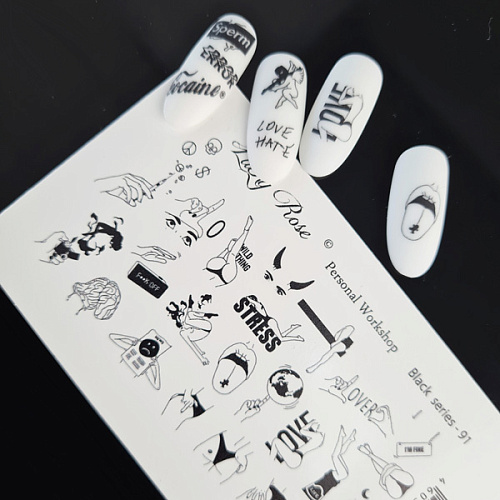 Sperm
ERROR
Cocaine®
LOVE
HATE
LOVE
Lucy Rose
©
Personal Workshop
Black series - 91
WILD
THING
F**K OFF
STRESS
LOVER
LOVE
I'M FINE